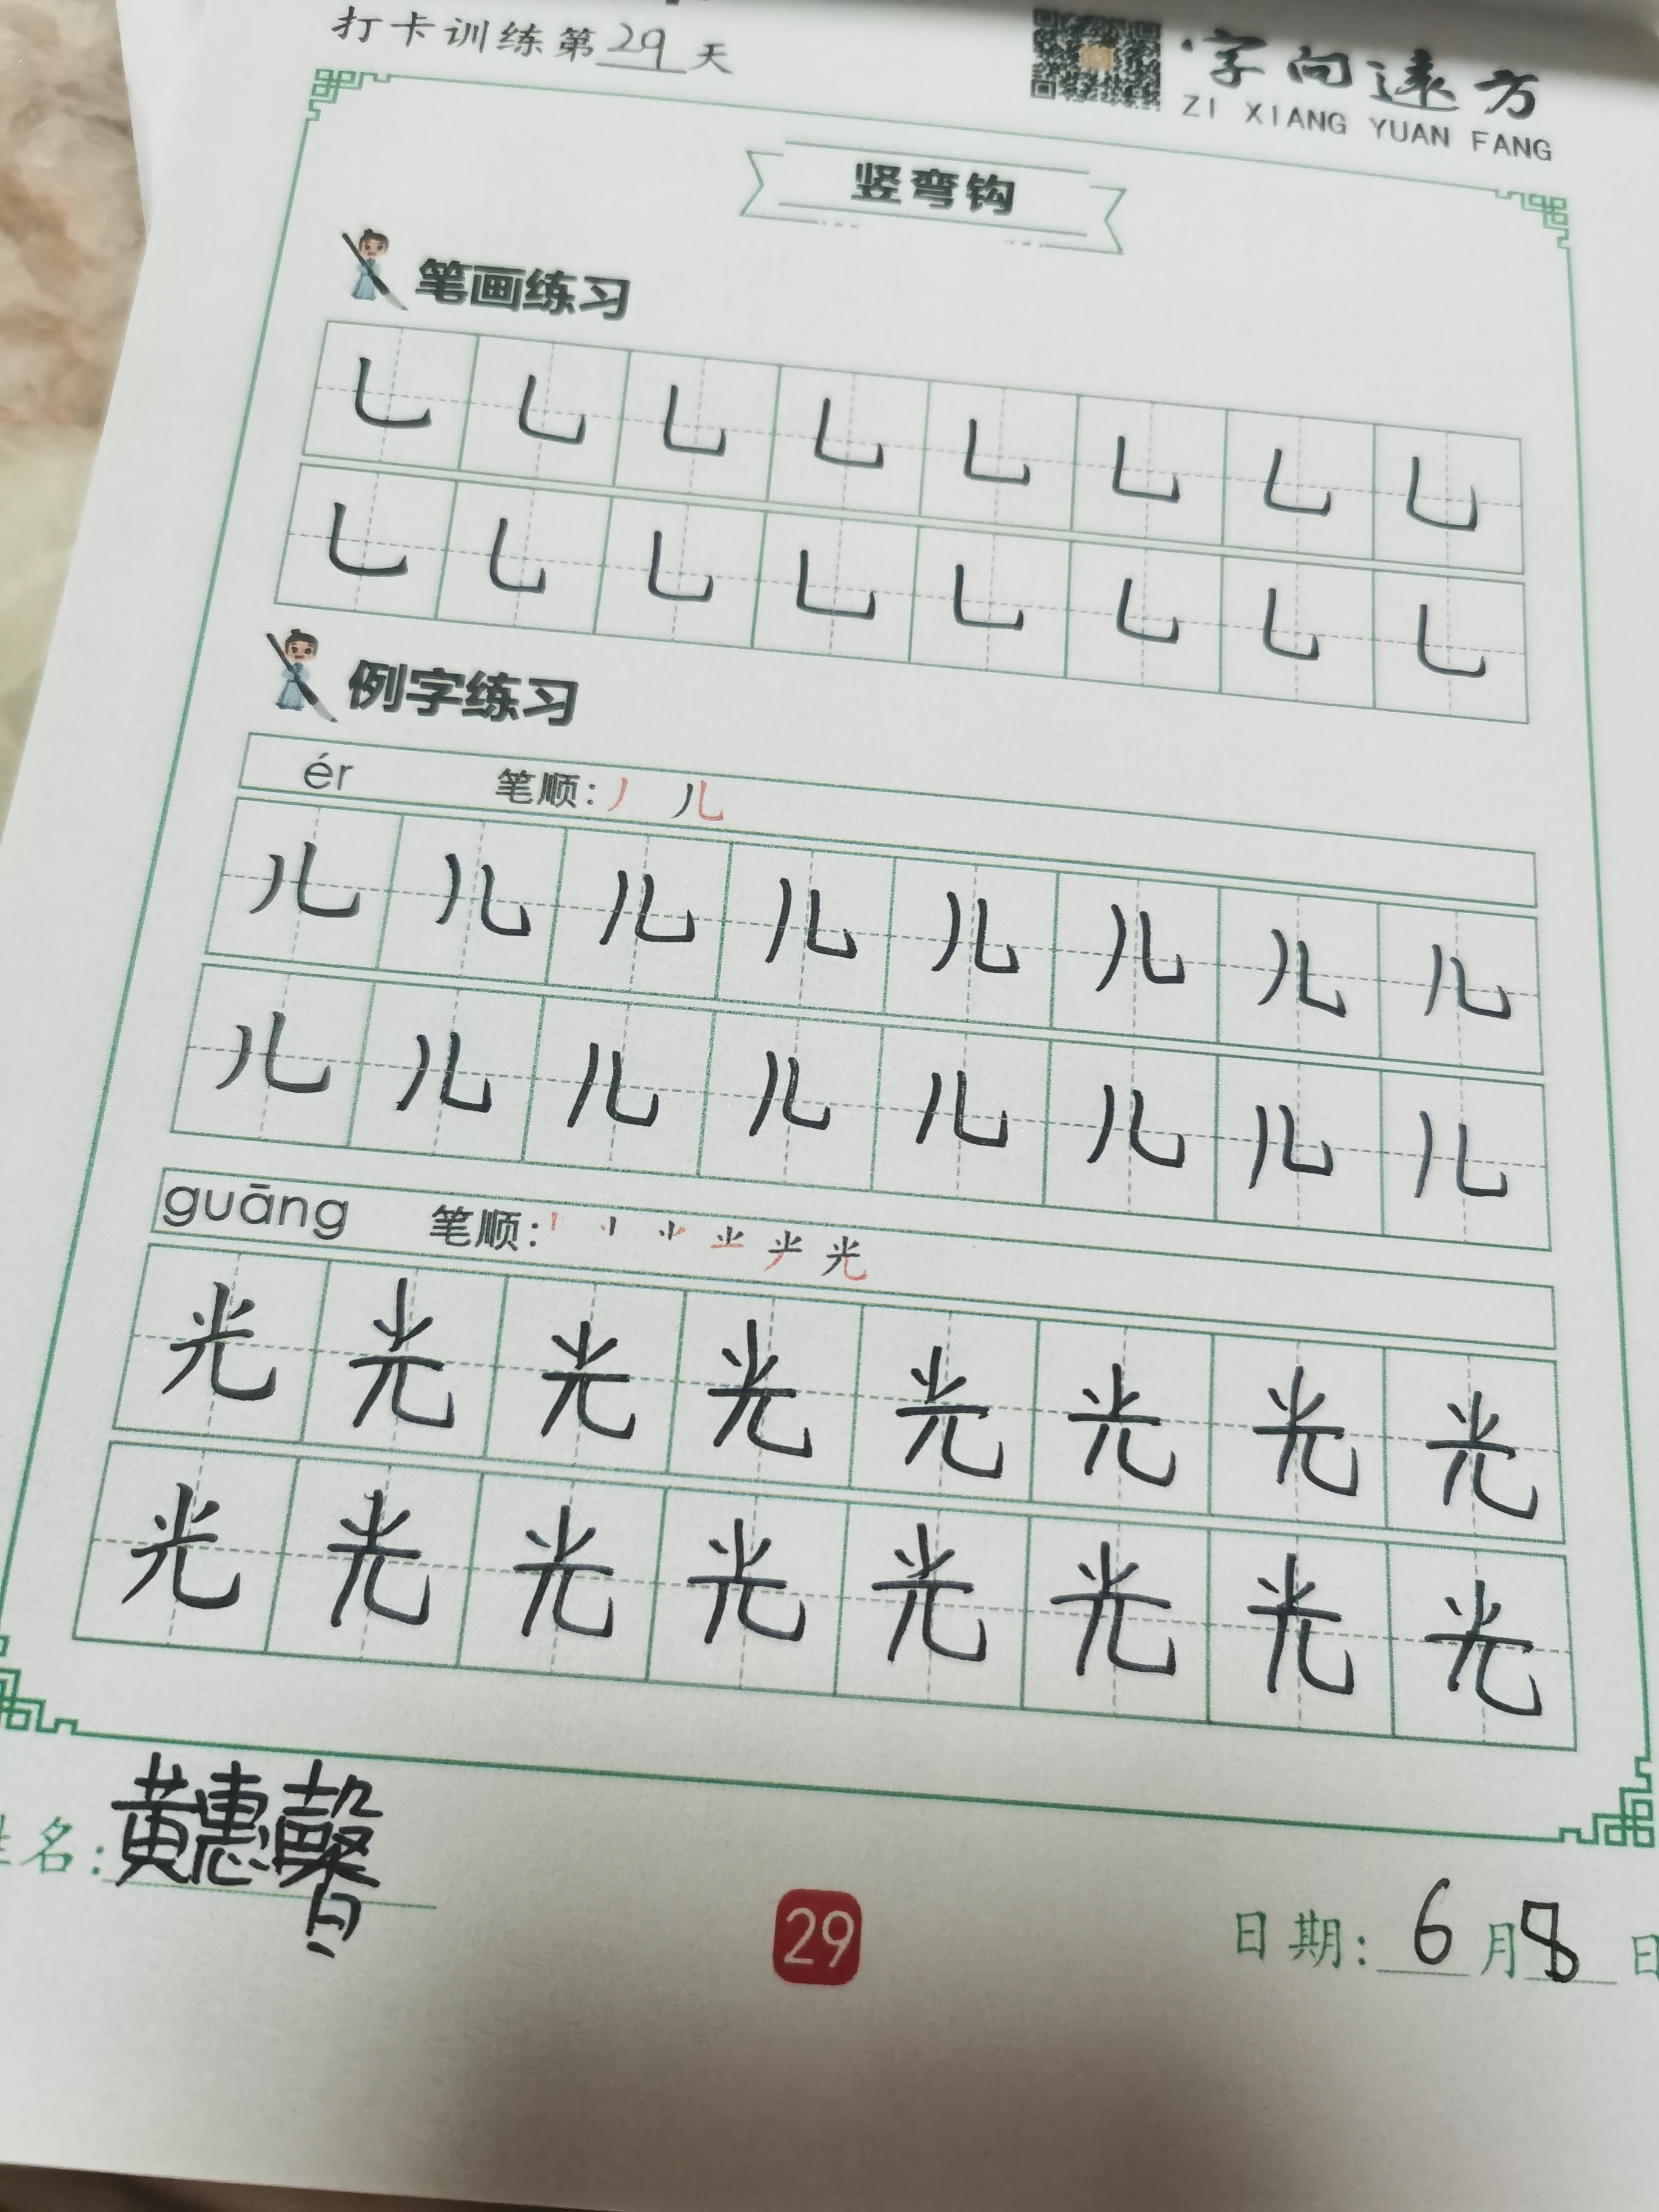 打卡训练第29天
字向远方
ZI XIANG YUAN FANG
竖弯钩
笔画练习
乚 乚 乚 乚 乚 乚 乚 乚
乚 乚 乚 乚 乚 乚 乚 乚
例字练习
ér 笔顺: 丿 儿
儿 儿 儿 儿 儿 儿 儿 儿
儿 儿 儿 儿 儿 儿 儿 儿
guāng 笔顺:
光 光 光 光 光 光 光 光
光 光 光 光 光 光 光 光
姓名: 黄惠馨
29
日期: 6月8日